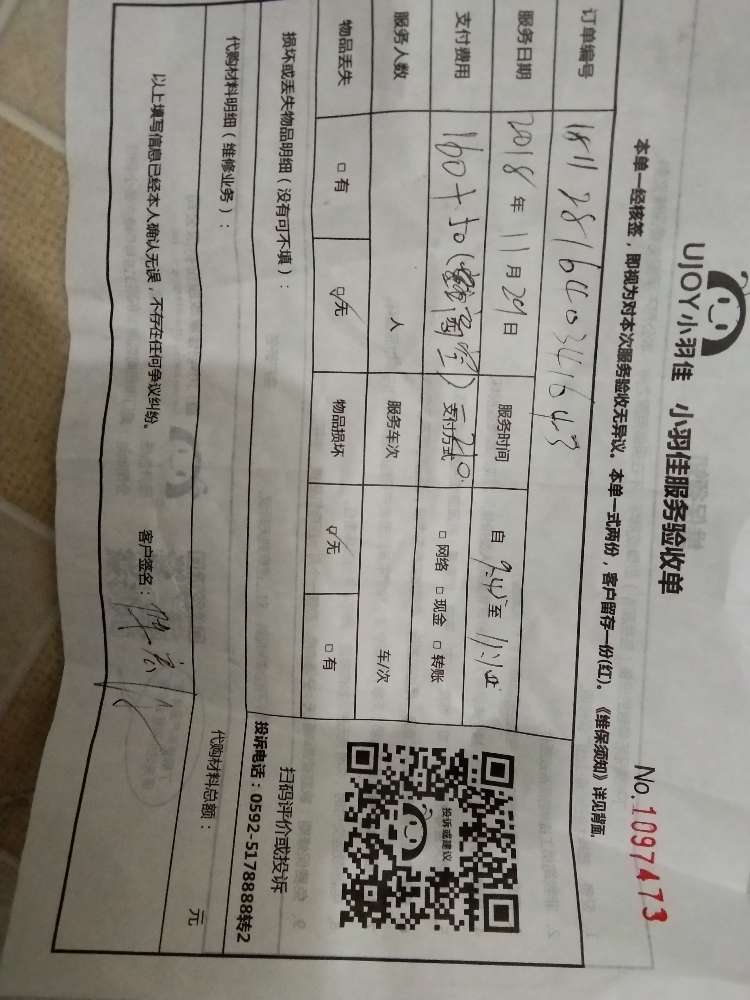 UJOY小羽佳 小羽佳服务验收单
No. 1097473
本单一经核签，即视为对本次服务验收无异议。本单一式两份，客户留存一份(红)。《维保须知》详见背面
订单编号 181128164034164 3
服务日期 2018年11月29日 服务时间 自 9:45至 11:
支付费用 160+50( )=210. 支付方式 □网络 □现金 □转账
服务人数 人 服务车次 车/次
物品丢失 □有 ☑无 物品损坏 ☑无 □有
损坏或丢失物品明细（没有可不填）：
代购材料明细（维修业务）：
代购材料总额： 元
以上填写信息已经本人确认无误，不存在任何争议纠纷。
客户签名：
投诉或建议
扫码评价或投诉
投诉电话：0592-5178888转2